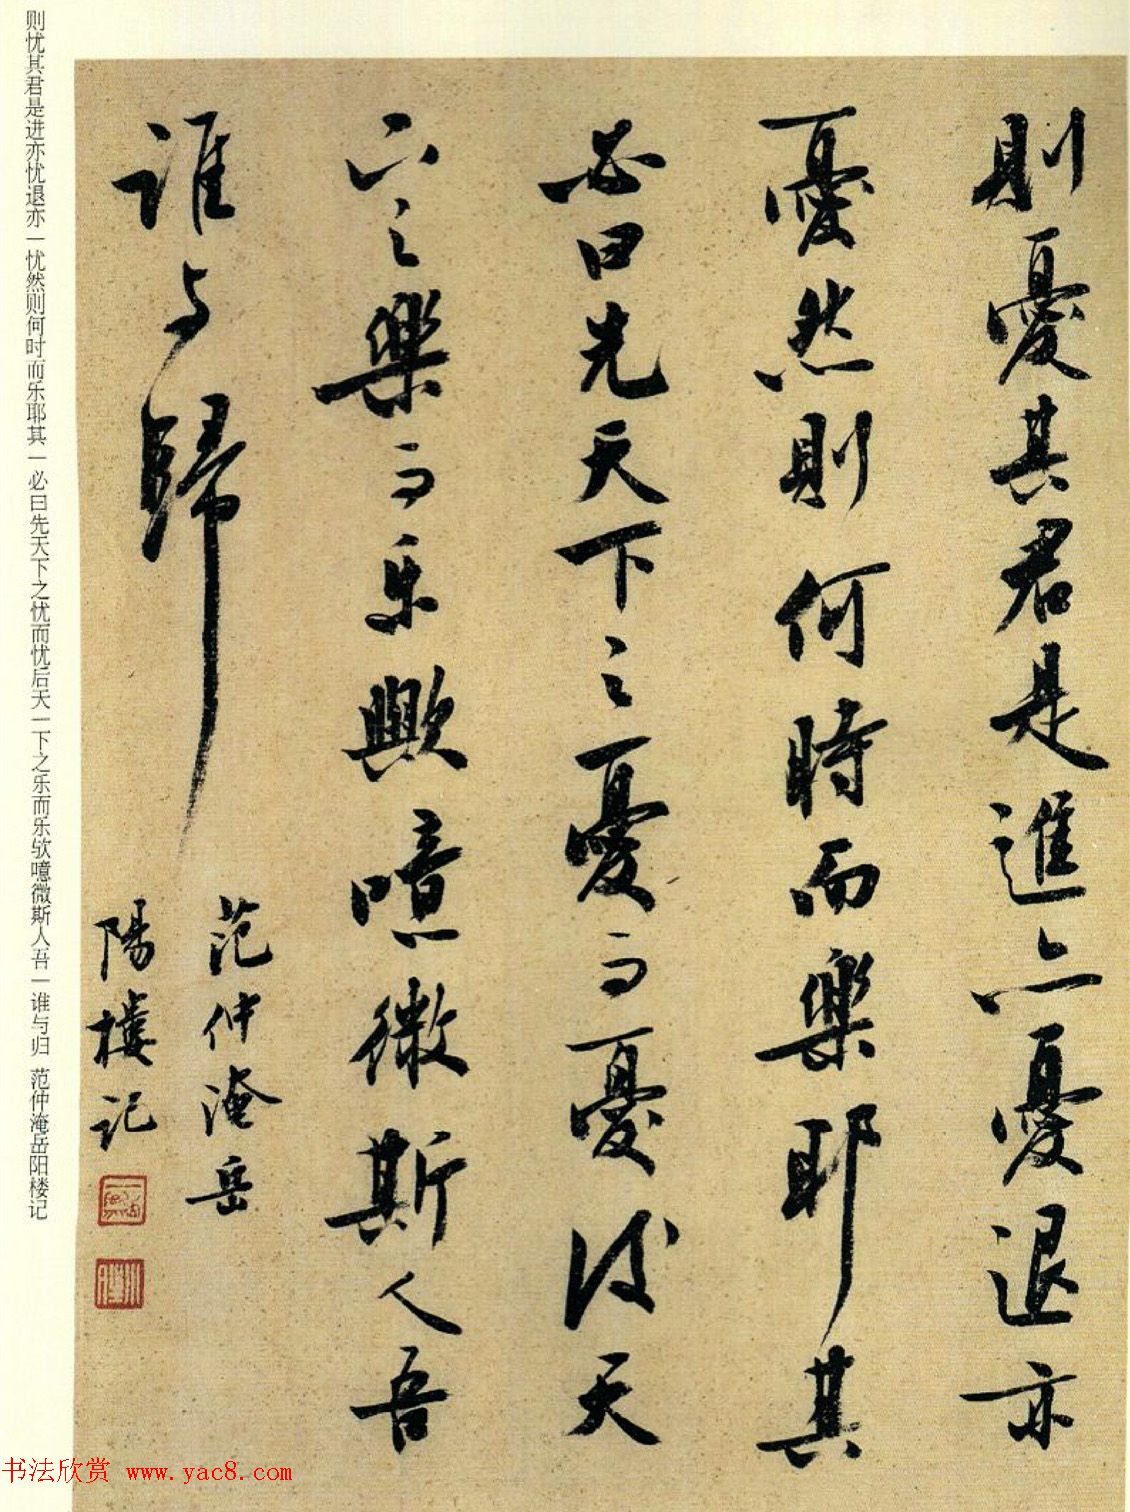 則憂其君是進亦憂退亦
憂然則何時而樂耶其
必曰先天下之憂而憂後天
下之樂而乐歟噫微斯人吾
谁与歸
范仲淹岳
陽樓记
则忧其君是进亦忧退亦一忧然则何时而乐耶其一必曰先天下之忧而忧后天一下之乐而乐欤噫微斯人吾一谁与归 范仲淹岳阳楼记
书法欣赏 www.yac8.com